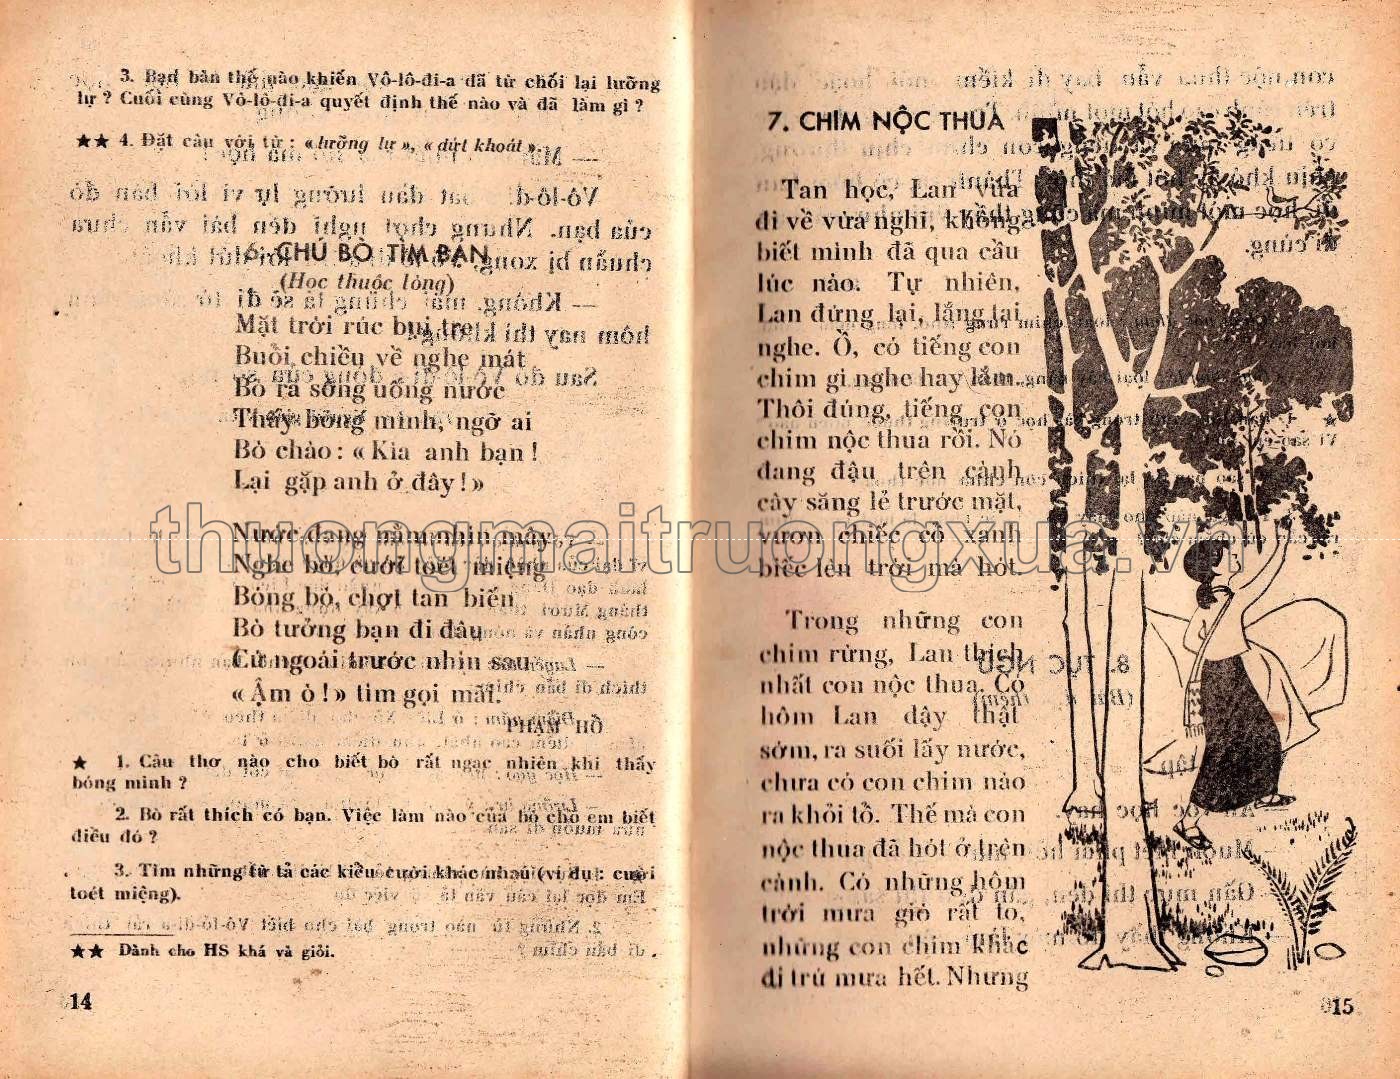 3. Bạn bàn thế nào khiến Vô-lô-đi-a đã từ chối lại lưỡng
lự ? Cuối cùng Vô-lô-đi-a quyết định thế nào và đã làm gì ?
★★ 4. Đặt câu với từ : « lưỡng lự », « dứt khoát ».
6. CHÚ BÒ TÌM BẠN
(Học thuộc lòng)
Mặt trời rúc bụi tre
Buổi chiều về nghe mát
Bò ra sông uống nước
Thấy bóng mình, ngỡ ai
Bò chào : « Kìa anh bạn !
Lại gặp anh ở đây ! »
Nước đang nằm nhìn mây
Nghe bò, cười toét miệng
Bóng bò, chợt tan biến
Bò tưởng bạn đi đâu
Cứ ngoái trước nhìn sau
« Ậm ò ! » tìm gọi mãi.
PHẠM HỔ
★ 1. Câu thơ nào cho biết bò rất ngạc nhiên khi thấy
bóng mình ?
2. Bò rất thích có bạn. Việc làm nào của bò cho em biết
điều đó ?
3. Tìm những từ tả các kiểu cười khác nhau (ví dụ : cười
toét miệng).
★★ Dành cho HS khá và giỏi.
14
7. CHIM NỘC THUA
Tan học, Lan vừa
đi về vừa nghĩ, không
biết mình đã qua cầu
lúc nào. Tự nhiên,
Lan đứng lại, lắng tai
nghe. Ồ, có tiếng con
chim gì nghe hay lắm.
Thôi đúng, tiếng con
chim nộc thua rồi. Nó
đang đậu trên cành
cây săng lẻ trước mặt,
vươn chiếc cổ xanh
biếc lên trời mà hót.
Trong những con
chim rừng, Lan thích
nhất con nộc thua. Có
hôm Lan dậy thật
sớm, ra suối lấy nước,
chưa có con chim nào
ra khỏi tổ. Thế mà con
nộc thua đã hót ở trên
cành. Có những hôm
trời mưa gió rất to,
những con chim khác
đi trú mưa hết. Nhưng
15
thuongmaitruongxua.vn